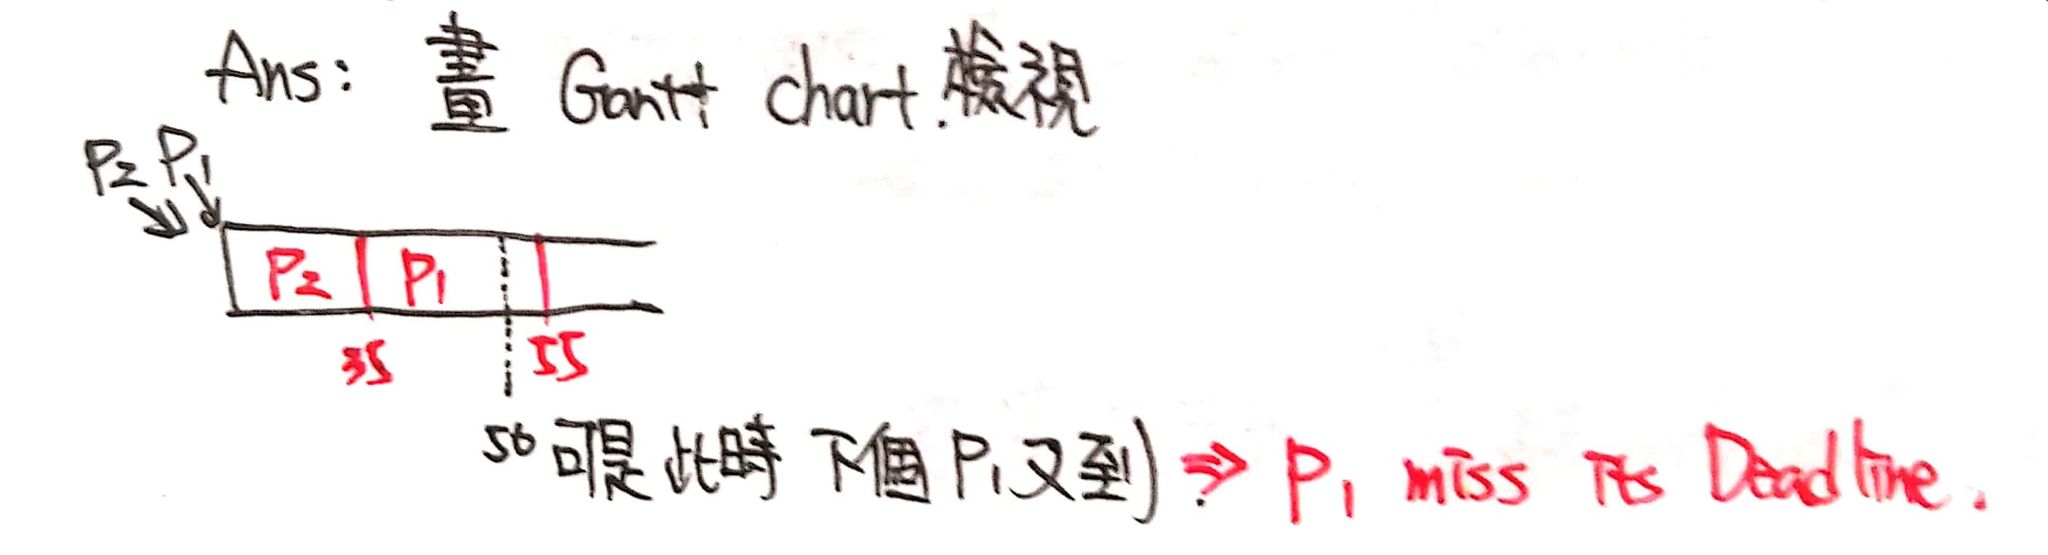 Ans: 畫 Gantt chart.檢視
P2 P1
P2 P1
35 55
50 可是此時 下個 P1又到) ⇒ P1 miss its Deadline.